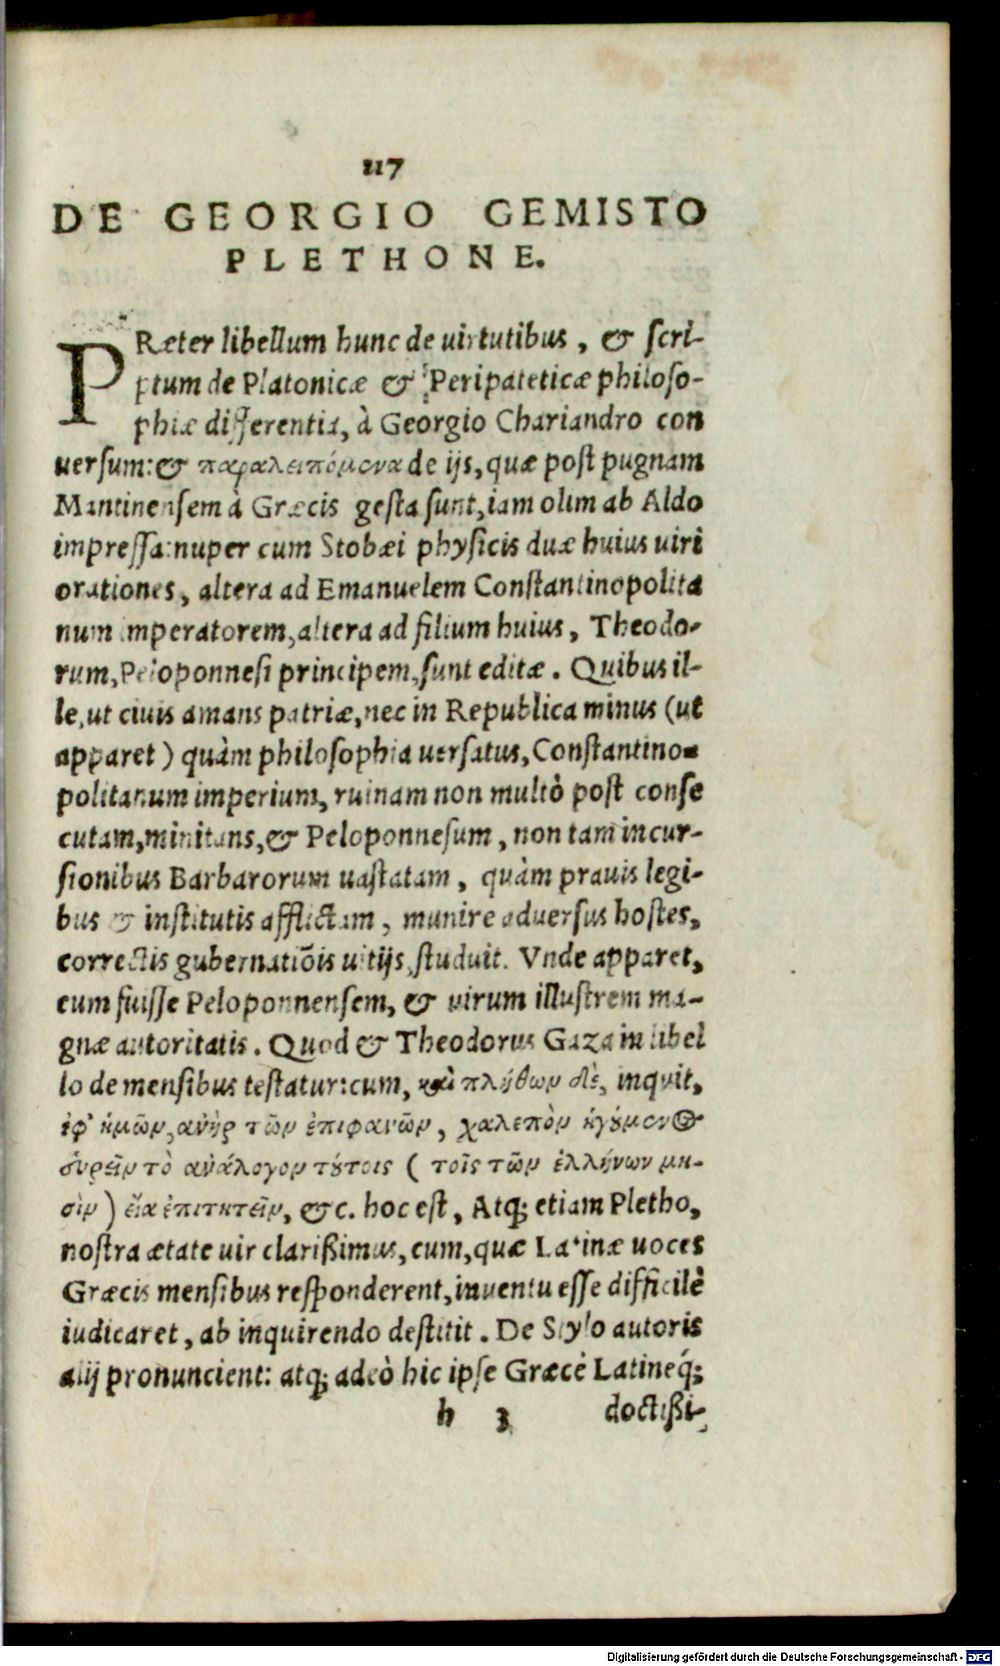 117
DE GEORGIO GEMISTO
PLETHONE.
PRæter libellum hunc de uirtutibus, & scri-
ptum de Platonicæ & Peripateticæ philoso-
phiæ differentia, à Georgio Chariandro con
uersum: & παραλειπόμενα de ijs, quæ post pugnam
Mantinensem à Græcis gesta sunt, iam olim ab Aldo
impressa: nuper cum Stobæi physicis duæ huius uiri
orationes, altera ad Emanuelem Constantinopolita
num imperatorem, altera ad filium huius, Theodo-
rum, Peloponnesi principem, sunt editæ. Quibus il-
le, ut ciuis amans patriæ, nec in Republica minus (ut
apparet) quàm philosophia uersatus, Constantino-
politanum imperium, ruinam non multò post conse
cutam, minitans, & Peloponnesum, non tam incur-
sionibus Barbarorum uastatam, quàm prauis legi-
bus & institutis afflictam, munire aduersus hostes,
correctis gubernatiōis uitijs, studuit. Vnde apparet,
eum fuisse Peloponnensem, & uirum illustrem ma-
gnæ autoritatis. Quod & Theodorus Gaza in libel
lo de mensibus testatur: cum, καὶ πλήθων δὲ, inquit,
ἐφ' ἡμῶν, ἀνὴρ τῶν ἐπιφανῶν, χαλεπὸν ἡγούμενος
εὑρεῖν τὸ ἀνάλογον τούτοις (τοῖς τῶν ἑλλήνων μη-
σὶν) εἴα ἐπιζητεῖν, &c. hoc est, Atq; etiam Pletho,
nostra ætate uir clarißimus, cum, quæ Latinæ uoces
Græcis mensibus responderent, inuentu esse difficilè
iudicaret, ab inquirendo destitit. De Stylo autoris
alij pronuncient: atq; adeò hic ipse Græcè Latineq́;
h 3 doctißi-
Digitalisierung gefördert durch die Deutsche Forschungsgemeinschaft - DFG